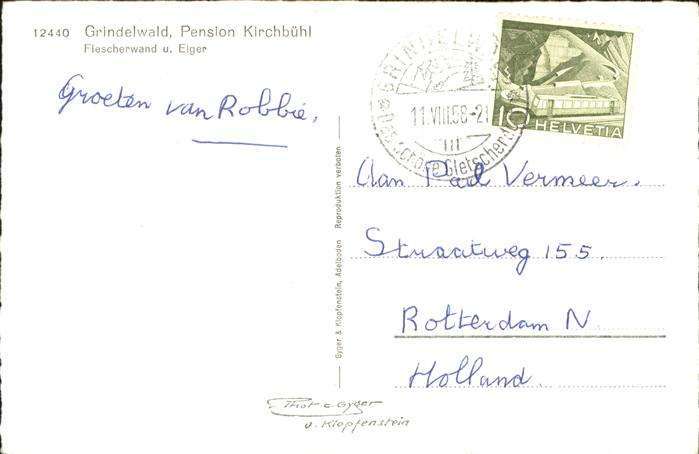 12440 Grindelwald, Pension Kirchbühl
Fiescherwand u. Eiger
Groeten van Robbie.
GRINDELWALD
11.VIII.58-21
Das schöne Gletscherdorf
10 HELVETIA
Gyger & Klopfenstein, Adelboden Reproduktion verboten
Aan Paul Vermeer.
Straatweg 155.
Rotterdam N.
Holland.
Phot. Gyger
u. Klopfenstein